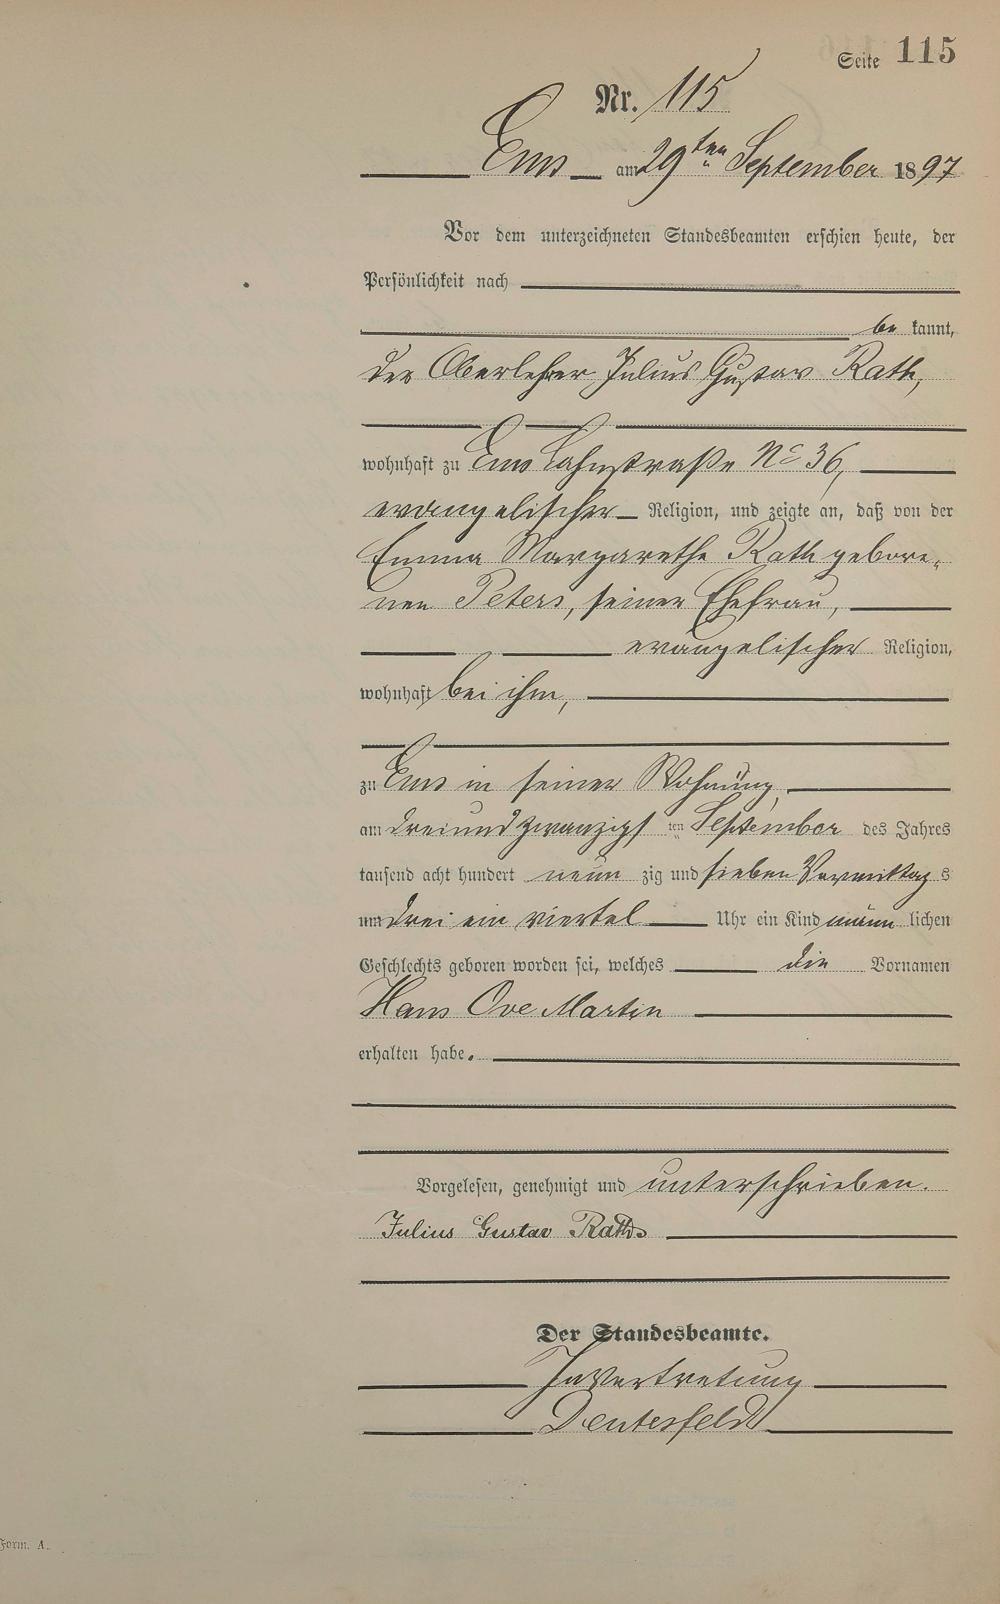 Seite 115
Nr. 115
Ems am 29ten September 1897
Vor dem unterzeichneten Standesbeamten erschien heute, der
Persönlichkeit nach
be kannt,
der Oberlehrer Julius Gustav Rath,
wohnhaft zu Ems Lahnstraße No 36,
evangelischer Religion, und zeigte an, daß von der
Emma Margarethe Rath gebore-
nen Peters, seiner Ehefrau,
evangelischer Religion,
wohnhaft bei ihm,
zu Ems in seiner Wohnung,
am dreiundzwanzigsten September des Jahres
tausend acht hundert neun zig und sieben Vormittag s
um drei ein viertel Uhr ein Kind männ lichen
Geschlechts geboren worden sei, welches die Vornamen
Hans Ove Martin
erhalten habe.
Vorgelesen, genehmigt und unterschrieben.
Julius Gustav Rath
Der Standesbeamte.
In Vertretung
Form. A.